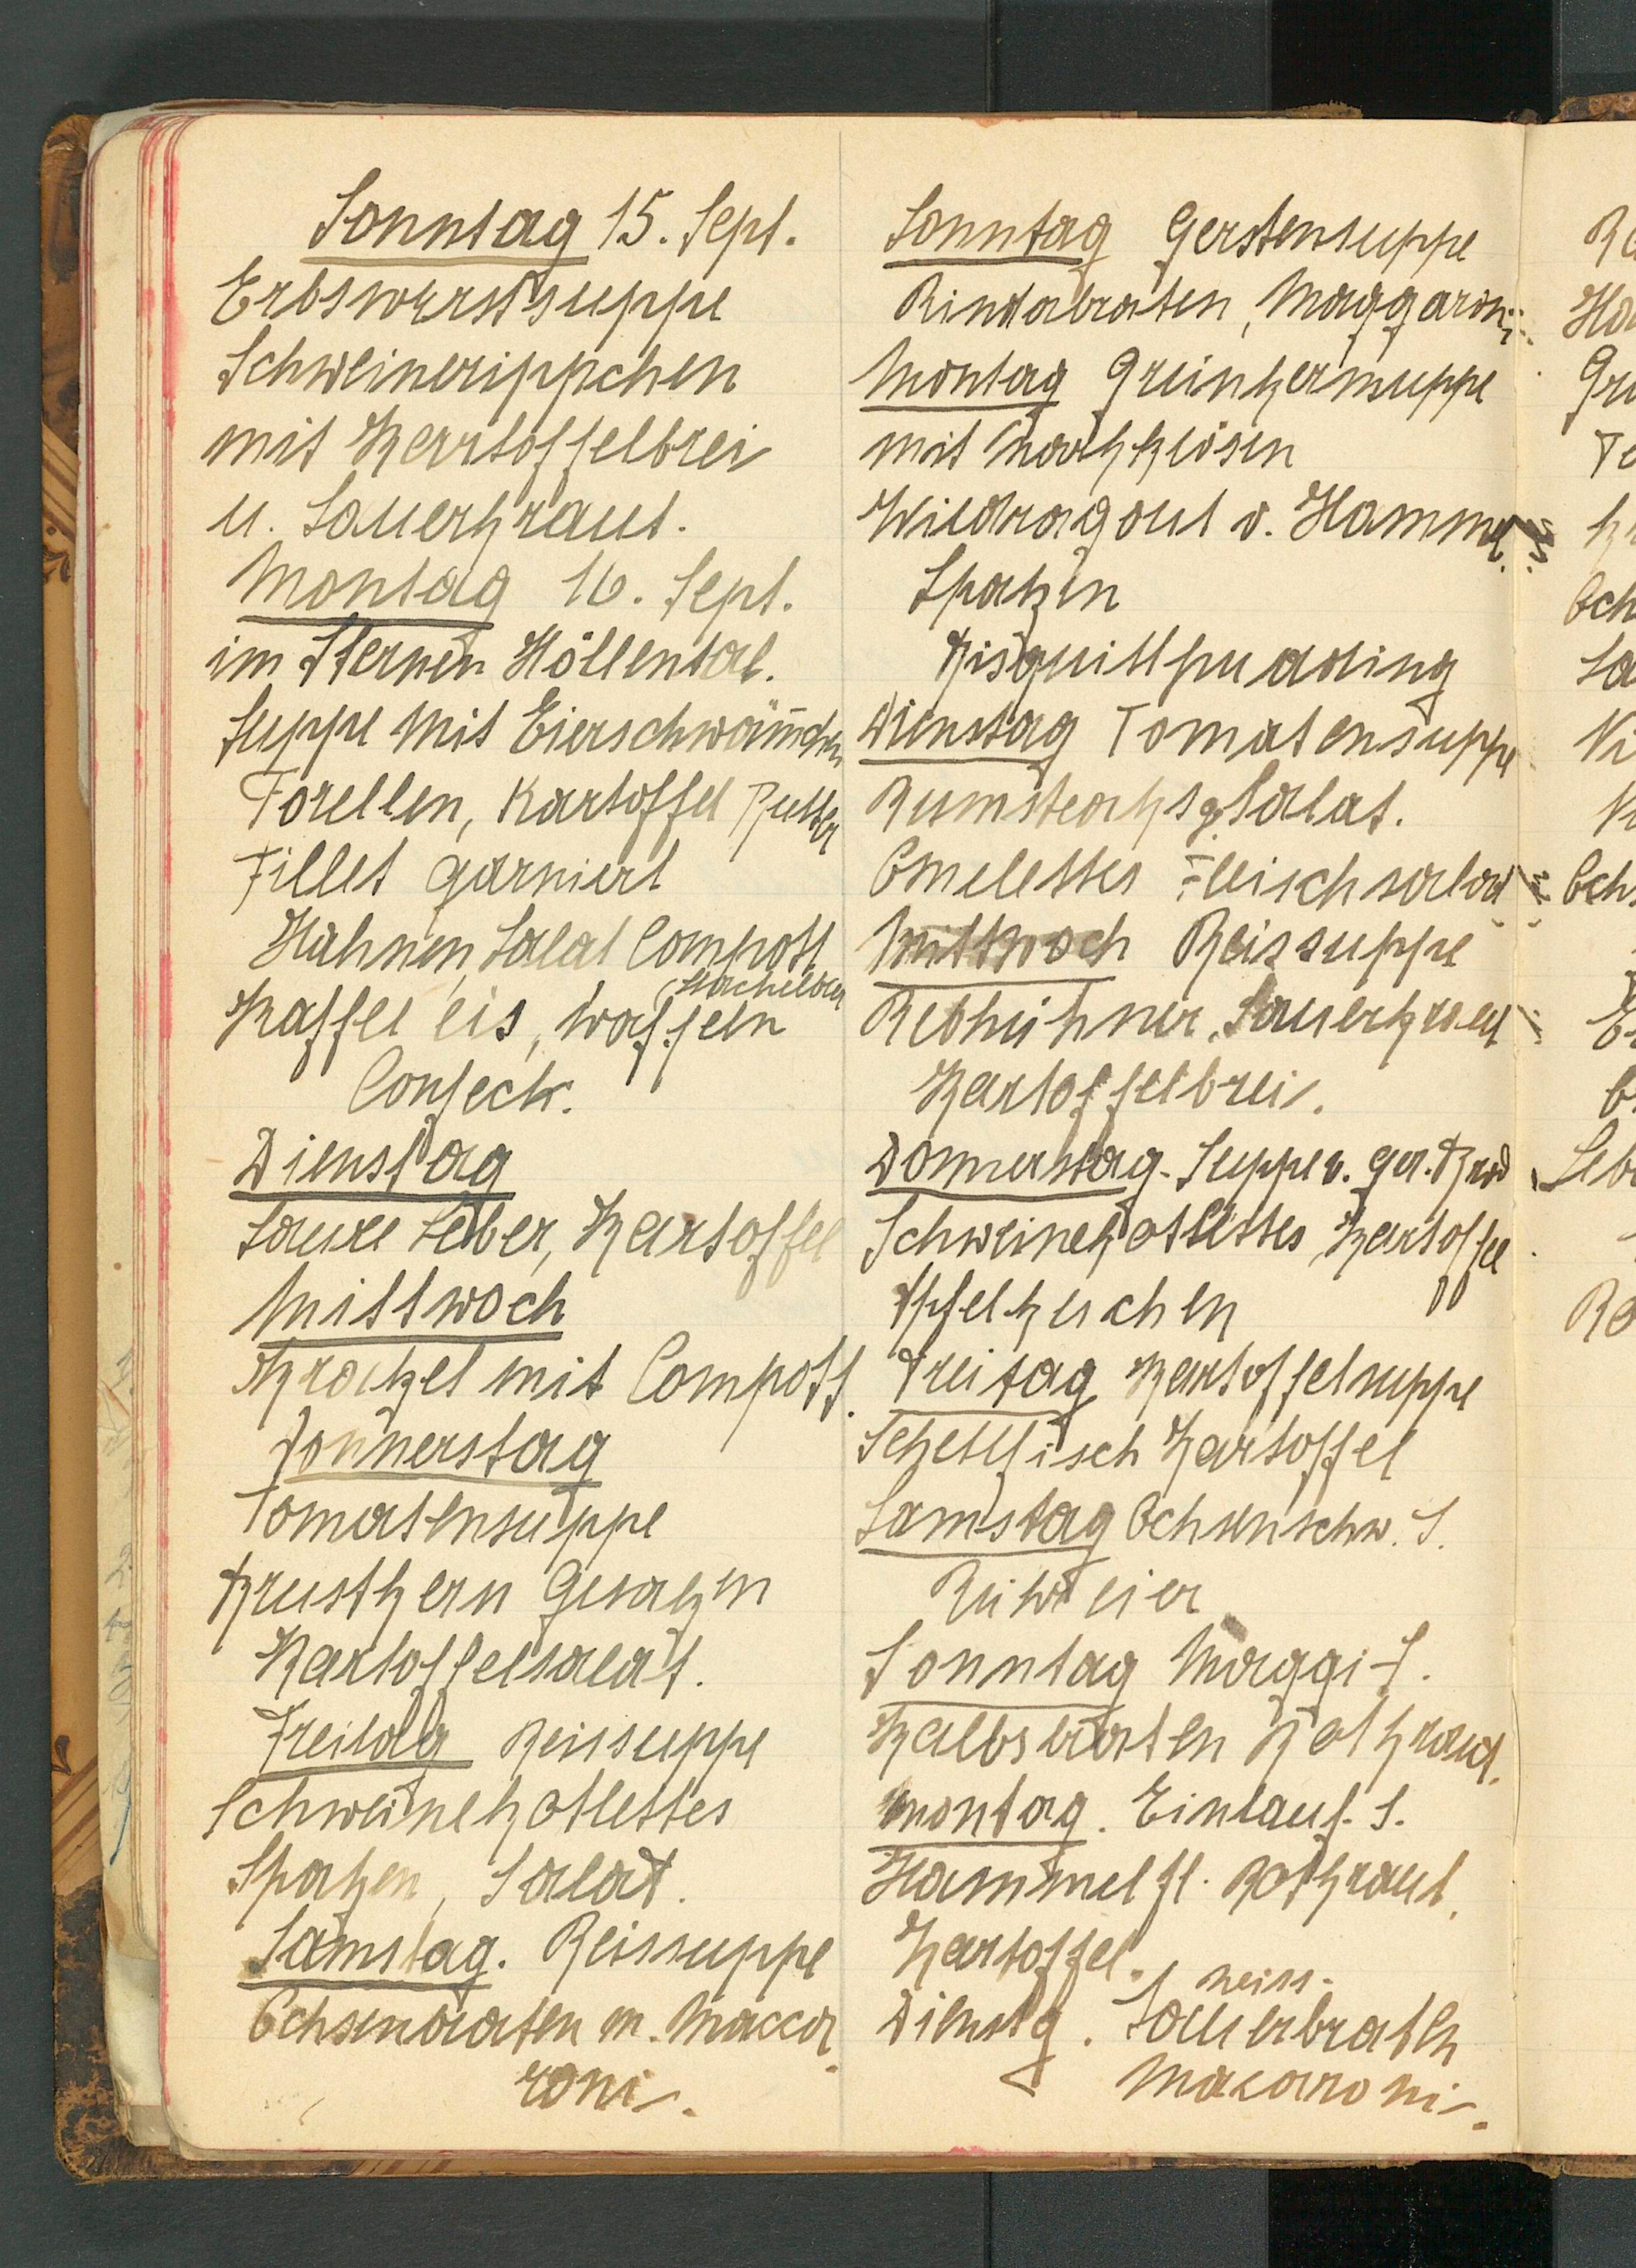 Sonntag 15. Sept.
Erbswurstsuppe
Schweinerippchen
mit Kartoffelbrei
u. Sauerkraut.
Montag 16. Sept.
im Sternen Höllental.
Suppe mit Eierschwämchen
Forellen, Kartoffel Butter
Fillet garniert
Hahnen, Salat Compott
(Stachelbeer
Kaffee eis, Waffeln
Confeck.
Dienstag
Saure Leber, Kartoffel
Mittwoch
Kratzet mit Compott.
Donnerstag
Tomatensuppe
Brustkern Gesalzen
Kartoffelsalat.
Freitag Reissuppe
Schweinekotlettes
Spatzen, Salat.
Samstag. Reissuppe
Ochsenbraten m. Macca
roni.
Sonntag Gerstensuppe
Rindsbraten, Maggaroni
Montag Grünkernsuppe
mit Markklösen
Wildragout v. Hammel
Spatzen
Bisquittpudding
Dienstag Tomatensuppe
Rumsteaks, Salat.
Omelettes Fleischsalad
Mittwoch Reissuppe
Rebhühner, Sauerkraut
Kartoffelbrei.
Donnerstag. Suppe v. ger. Brod
Schweinekotlettes, Kartoffel
Apfelkuchen
Freitag Kartoffelsuppe
Schellfisch Kartoffel
Samstag Ochsenschw. S.
Rühreier
Sonntag Maggi-S.
Kalbsbraten Rotkraut.
Montag. Einlauf. S.
Hammelfl. Rotkraut,
Kartoffel.
Dienstg. Reiss-S
Sauerbraten
Macaroni.